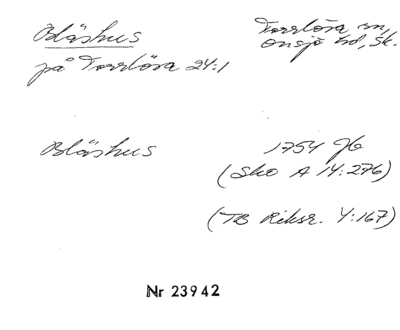 Blåshus
Torrlösa sn,
Onsjö hd, Sk.
på Torrlösa 24:1
Blåshus
1754 Jb
(Sko A 14:276)
(TB Riksr. 4:167)
Nr 23942